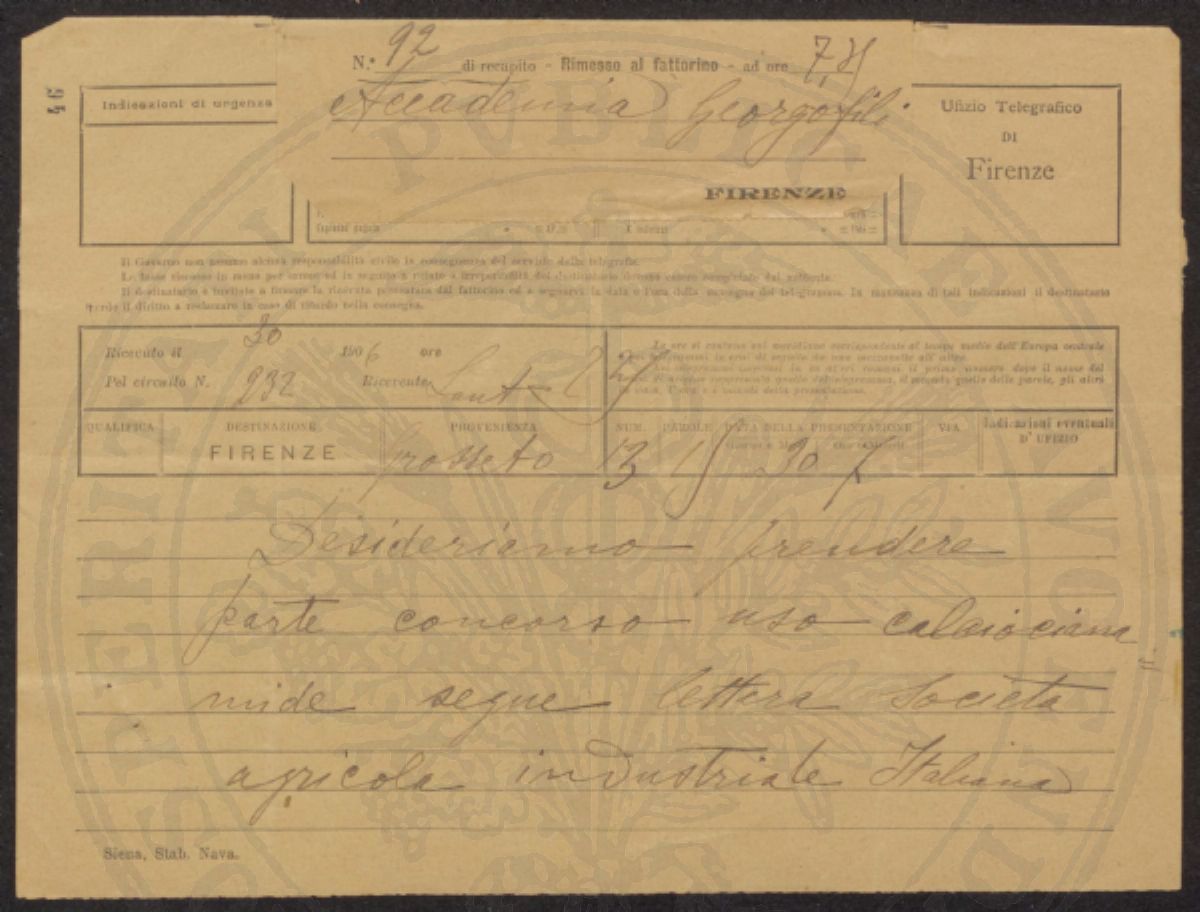 46
N.° 92 di recapito - Rimesso al fattorino - ad ore 7,
Indicazioni di urgenza
Accademia Georgofili
FIRENZE
Ufizio Telegrafico
DI
Firenze
Il Governo non assume alcuna responsabilità civile in conseguenza del servizio della telegrafia.
Le tasse riscosse in meno per errore od in seguito a rifiuto o irreperibilità del destinatario devono essere completate dal mittente.
Il destinatario è invitato a firmare la ricevuta presentata dal fattorino ed a segnarvi la data e l'ora della consegna del telegramma. In mancanza di tali indicazioni il destinatario
perde il diritto a reclamare in caso di ritardo nella consegna.
Ricevuto il 30 1906 ore
Pel circuito N. 232 Ricevente
Le ore si contano sul meridiano corrispondente al tempo medio dell'Europa centrale
QUALIFICA DESTINAZIONE PROVENIENZA NUM. PAROLE DATA DELLA PRESENTAZIONE VIA Indicazioni eventuali
D'UFIZIO
FIRENZE Grosseto 13 15 30
Desideriamo prendere
parte concorso uso calciociana
mide segue lettera Società
agricola industriale Italiana
Siena, Stab. Nava.